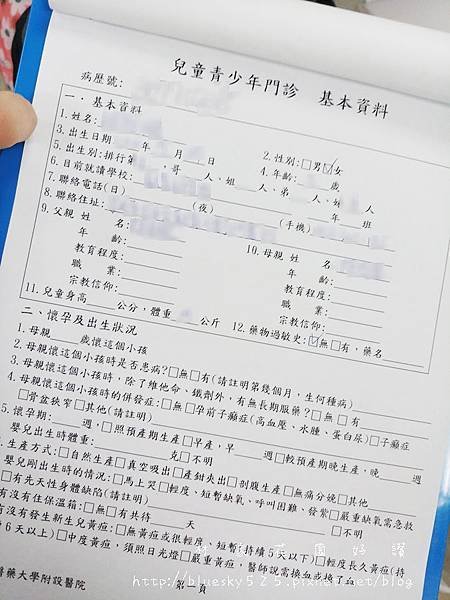 兒童青少年門診 基本資料
病歷號:
一、基本資料
1.姓名: 2.性別:□男☑女
3.出生日期 年 月 日 4.年齡: 歲
5.出生別:排行第 ,哥 人、姐 人、弟 人、妹 人
6.目前就讀學校: 年 班
7.聯絡電話(日) (夜) (手機)
8.聯絡住址:
9.父親 姓 名: 10.母親 姓 名
年 齡: 年 齡:
教育程度: 教育程度:
職 業: 職 業:
宗教信仰: 宗教信仰:
11.兒童身高 公分,體重 公斤 12.藥物過敏史:☑無□有,藥名
二、懷孕及出生狀況
1.母親 歲懷這個小孩
2.母親懷這個小孩時是否患病?□無□有(請註明第幾個月,生何種病)
3.母親懷這個小孩時,除了維他命、鐵劑外,有無長期服藥?□無□有
4.母親懷這個小孩時的併發症:□無□孕前子癲症(高血壓、水腫、蛋白尿)□子癲症
□骨盆狹窄□其他(請註明)
5.懷孕期: 週,□照預產期生產□早產,早 週□較預產期晚生產,晚 週
嬰兒出生時體重: 克□不明
生產方式:□自然生產□真空吸出□產鉗夾出□剖腹生產□無痛分娩□其他
嬰兒剛出生時的情況:□馬上哭□輕度、短暫缺氧、呼叫困難、發紫□嚴重缺氧需急救
□有先天性身體缺陷(請註明) □不明
有沒有住保溫箱:□無□有共待 天
有沒有發生新生兒黃疸:□無黃疸或很輕度、短暫(持續5天以下)□輕度長久黃疸(持
續6天以上)□中度黃疸,須照日光燈□嚴重黃疸,醫師說需換血或換了血
醫藥大學附設醫院 第一頁
http://bluesky525.pixnet.net/blog